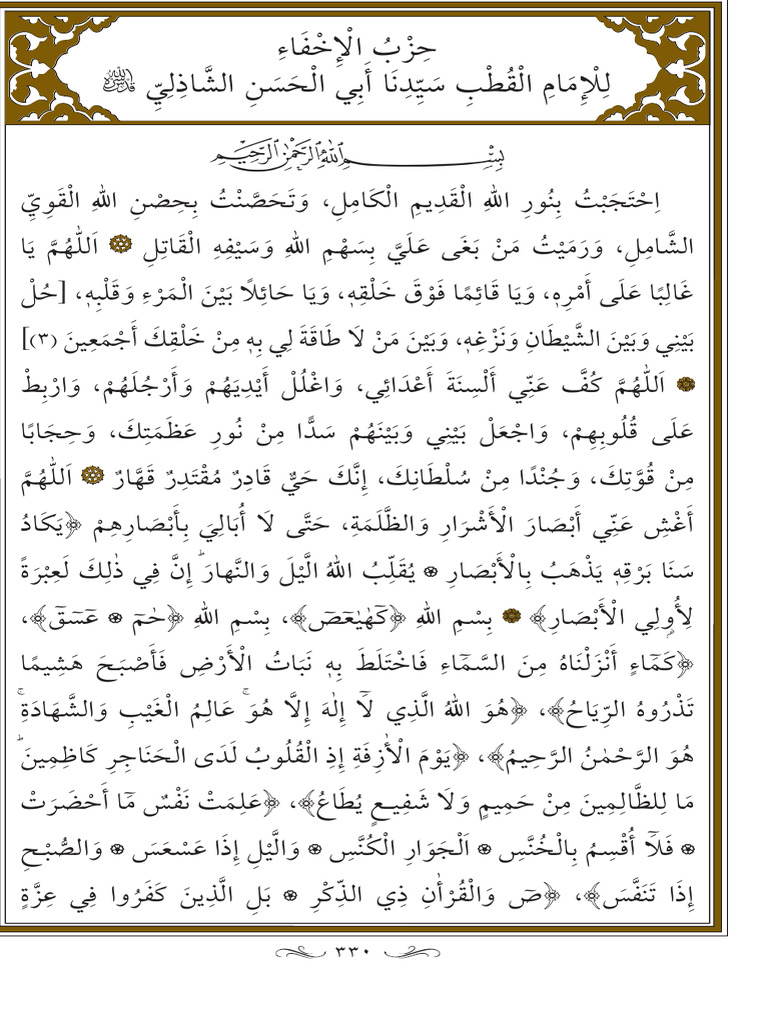 حِزْبُ الْإِخْفَاءِ
لِلْإِمَامِ الْقُطْبِ سَيِّدِنَا أَبِي الْحَسَنِ الشَّاذِلِيِّ
بِسْمِ اللهِ الرَّحْمٰنِ الرَّحِيمِ
اِحْتَجَبْتُ بِنُورِ اللهِ الْقَدِيمِ الْكَامِلِ، وَتَحَصَّنْتُ بِحِصْنِ اللهِ الْقَوِيِّ
الشَّامِلِ، وَرَمَيْتُ مَنْ بَغَى عَلَيَّ بِسَهْمِ اللهِ وَسَيْفِهِ الْقَاتِلِ ۞ اَللّٰهُمَّ يَا
غَالِبًا عَلَى أَمْرِهِ، وَيَا قَائِمًا فَوْقَ خَلْقِهِ، وَيَا حَائِلًا بَيْنَ الْمَرْءِ وَقَلْبِهِ، [حُلْ
بَيْنِي وَبَيْنَ الشَّيْطَانِ وَنَزْغِهِ، وَبَيْنَ مَنْ لَا طَاقَةَ لِي بِهِ مِنْ خَلْقِكَ أَجْمَعِينَ (٣)]
۞ اَللّٰهُمَّ كُفَّ عَنِّي أَلْسِنَةَ أَعْدَائِي، وَاغْلُلْ أَيْدِيَهُمْ وَأَرْجُلَهُمْ، وَارْبِطْ
عَلَى قُلُوبِهِمْ، وَاجْعَلْ بَيْنِي وَبَيْنَهُمْ سَدًّا مِنْ نُورِ عَظَمَتِكَ، وَحِجَابًا
مِنْ قُوَّتِكَ، وَجُنْدًا مِنْ سُلْطَانِكَ، إِنَّكَ حَيٌّ قَادِرٌ مُقْتَدِرٌ قَهَّارٌ ۞ اَللّٰهُمَّ
أَغْشِ عَنِّي أَبْصَارَ الْأَشْرَارِ وَالظَّلَمَةِ، حَتَّى لَا أُبَالِيَ بِأَبْصَارِهِمْ ﴿يَكَادُ
سَنَا بَرْقِهِ يَذْهَبُ بِالْأَبْصَارِ ۞ يُقَلِّبُ اللهُ الَّيْلَ وَالنَّهَارَ ۗ إِنَّ فِي ذٰلِكَ لَعِبْرَةً
لِأُولِي الْأَبْصَارِ﴾ ۞ بِسْمِ اللهِ ﴿كٓهٰيٰعٓصٓ﴾، بِسْمِ اللهِ ﴿حٰمٓ ۞ عٓسٓقٓ﴾،
﴿كَمَٓاءٍ أَنْزَلْنَاهُ مِنَ السَّمَٓاءِ فَاخْتَلَطَ بِهِ نَبَاتُ الْأَرْضِ فَأَصْبَحَ هَشِيمًا
تَذْرُوهُ الرِّيَاحُ﴾، ﴿هُوَ اللهُ الَّذِي لَٓا إِلٰهَ إِلَّا هُوَ ۚ عَالِمُ الْغَيْبِ وَالشَّهَادَةِ ۚ
هُوَ الرَّحْمٰنُ الرَّحِيمُ﴾، ﴿يَوْمَ الْأٰزِفَةِ إِذِ الْقُلُوبُ لَدَى الْحَنَاجِرِ كَاظِمِينَ ۗ
مَا لِلظَّالِمِينَ مِنْ حَمِيمٍ وَلَا شَفِيعٍ يُطَاعُ﴾، ﴿عَلِمَتْ نَفْسٌ مَٓا أَحْضَرَتْ
۞ فَلَٓا أُقْسِمُ بِالْخُنَّسِ ۞ اَلْجَوَارِ الْكُنَّسِ ۞ وَالَّيْلِ إِذَا عَسْعَسَ ۞ وَالصُّبْحِ
إِذَا تَنَفَّسَ﴾، ﴿صٓ وَالْقُرْأٰنِ ذِي الذِّكْرِ ۞ بَلِ الَّذِينَ كَفَرُوا فِي عِزَّةٍ
٣٣٠